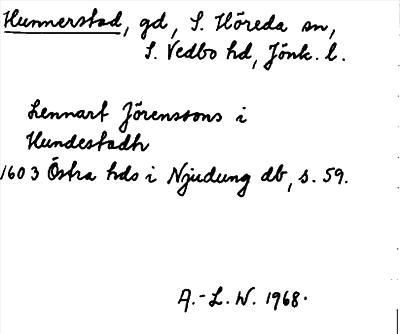 Hunnerstad, gd, S. Höreda sn,
S. Vedbo hd, Jönk. l.
Lennart Jörenssons i
Hundestadh
1603 Östra hds i Njudung db, s. 59.
A.-L. W. 1968.